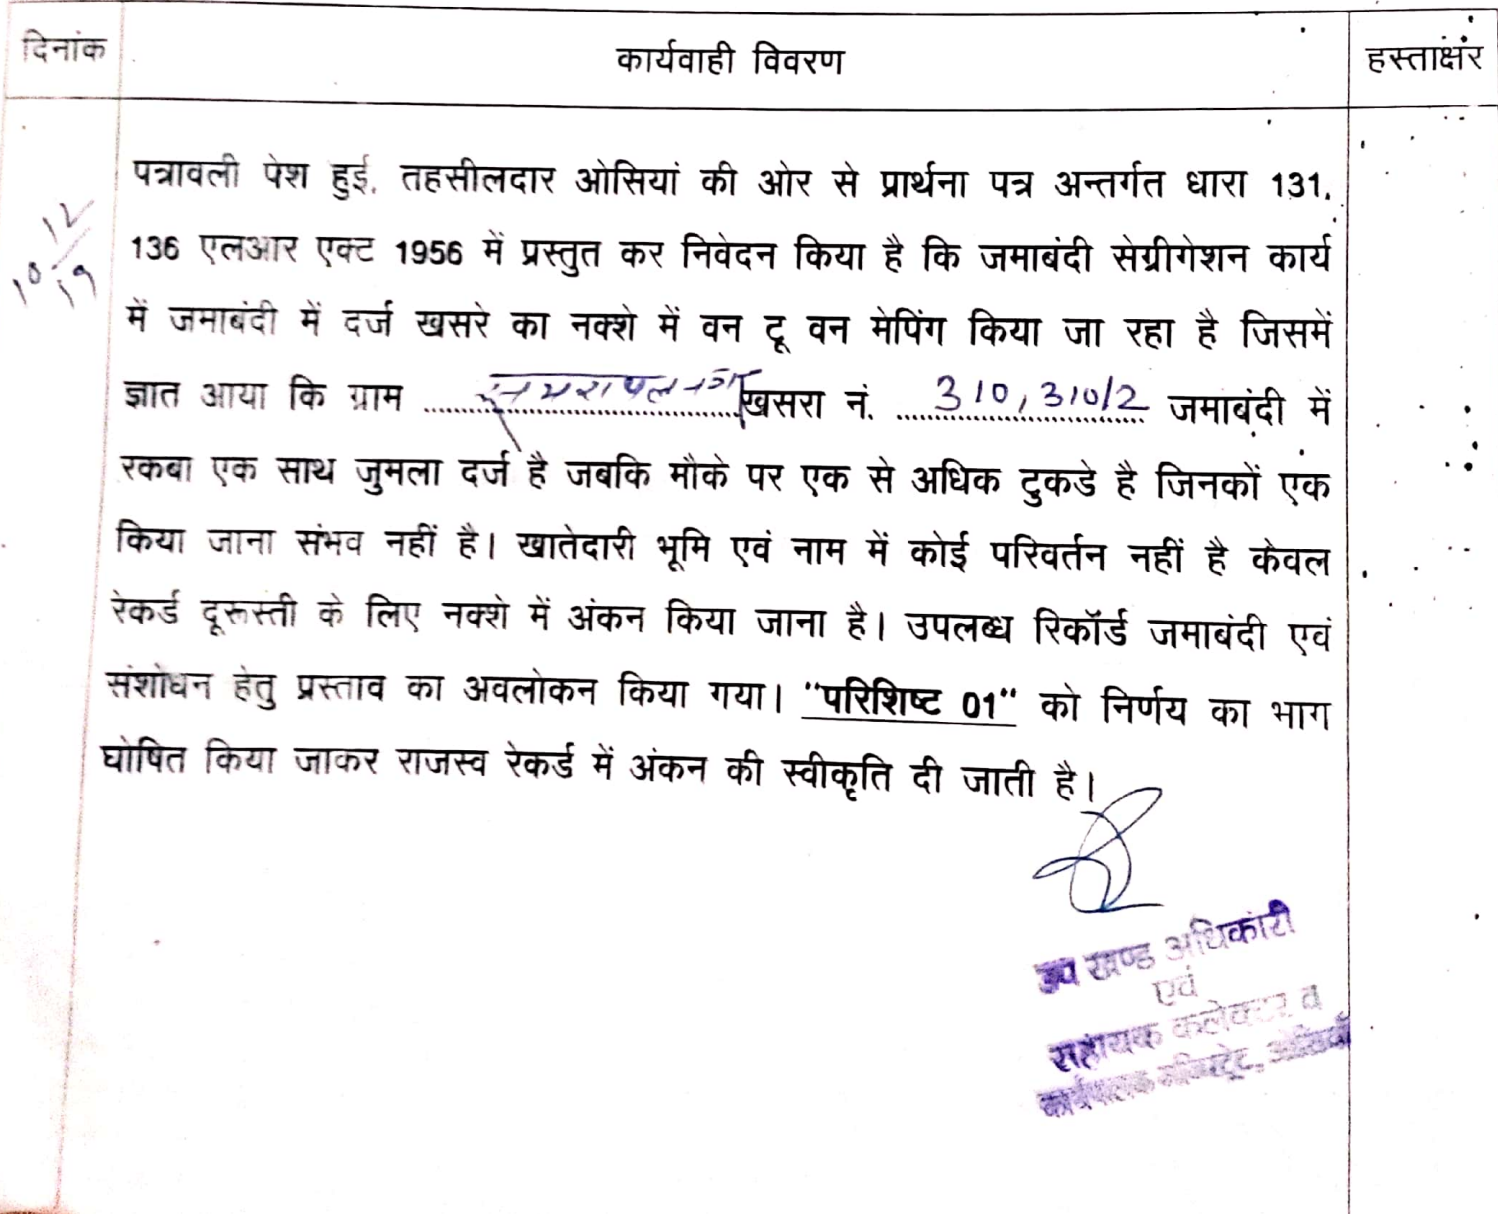 दिनांक कार्यवाही विवरण हस्ताक्षर
पत्रावली पेश हुई, तहसीलदार ओसियां की ओर से प्रार्थना पत्र अन्तर्गत धारा 131,
10/12/19
136 एलआर एक्ट 1956 में प्रस्तुत कर निवेदन किया है कि जमाबंदी सेग्रीगेशन कार्य
में जमाबंदी में दर्ज खसरे का नक्शे में वन टू वन मेपिंग किया जा रहा है जिसमें
ज्ञात आया कि ग्राम खसरा नं. 310, 310/2 जमाबंदी में
रकबा एक साथ जुमला दर्ज है जबकि मौके पर एक से अधिक टुकडे है जिनकों एक
किया जाना संभव नहीं है। खातेदारी भूमि एवं नाम में कोई परिवर्तन नहीं है केवल
रेकर्ड दूरूस्ती के लिए नक्शे में अंकन किया जाना है। उपलब्ध रिकॉर्ड जमाबंदी एवं
संशोधन हेतु प्रस्ताव का अवलोकन किया गया। "परिशिष्ट 01" को निर्णय का भाग
घोषित किया जाकर राजस्व रेकर्ड में अंकन की स्वीकृति दी जाती है।
उप खण्ड अधिकारी
एवं
सहायक कलेक्टर व
कार्यपालक मजिस्ट्रेट, ओसियाँ